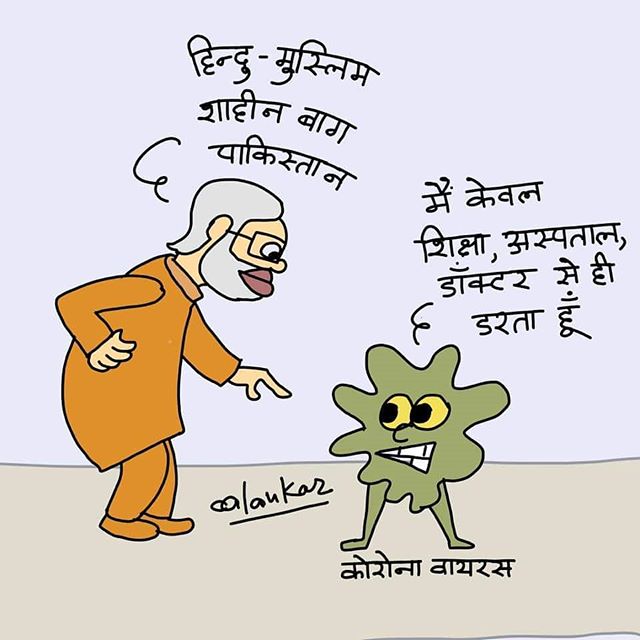 हिन्दु-मुस्लिम
शाहीन बाग
पाकिस्तान
मैं केवल
शिक्षा, अस्पताल,
डॉक्टर से ही
डरता हूँ
alankar
कोरोना वायरस